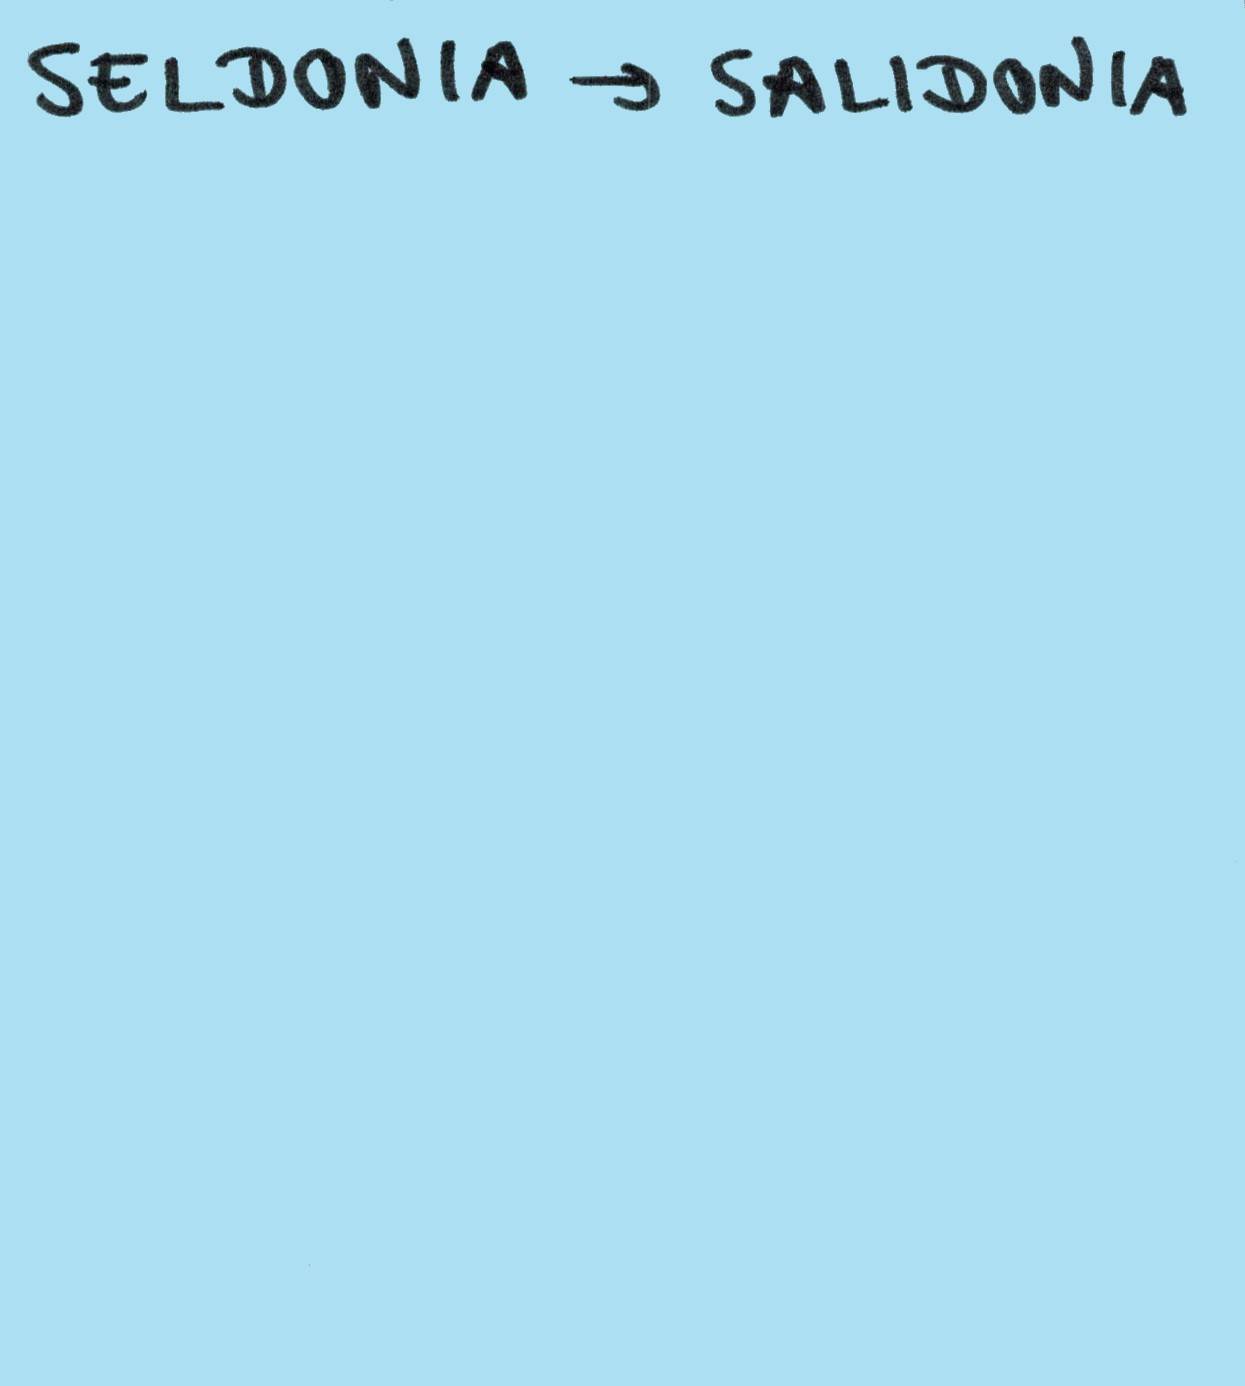 SELDONIA → SALIDONIA